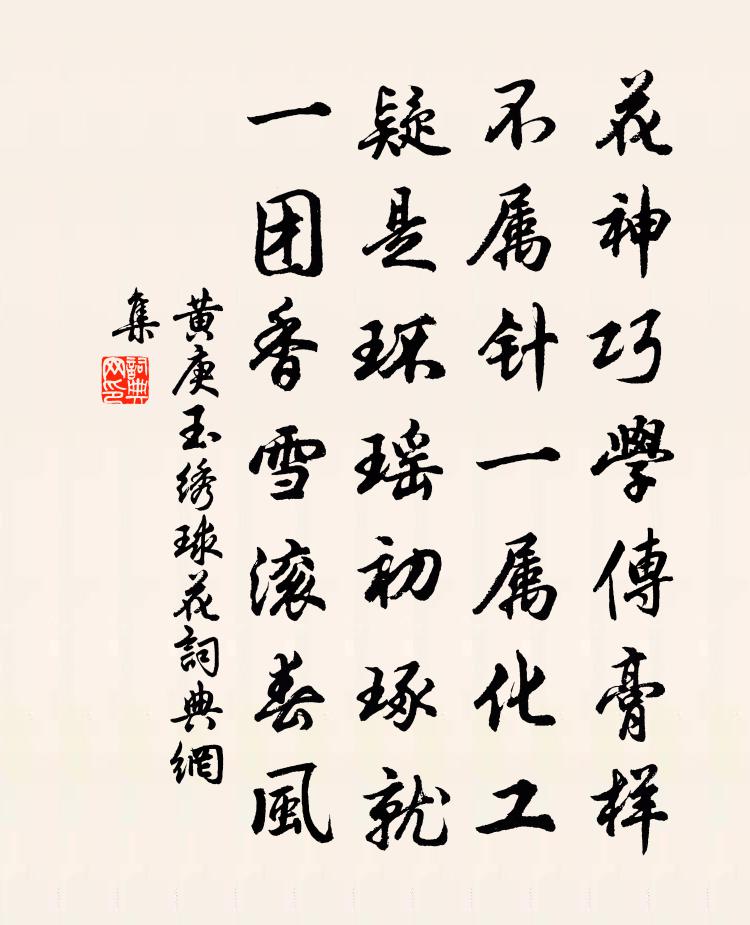 花神巧學傳膏样
不属针一属化工
疑是环瑶初琢就
一团香雪滚春風
黄庚玉绣球花詞典網
集
詞典网印